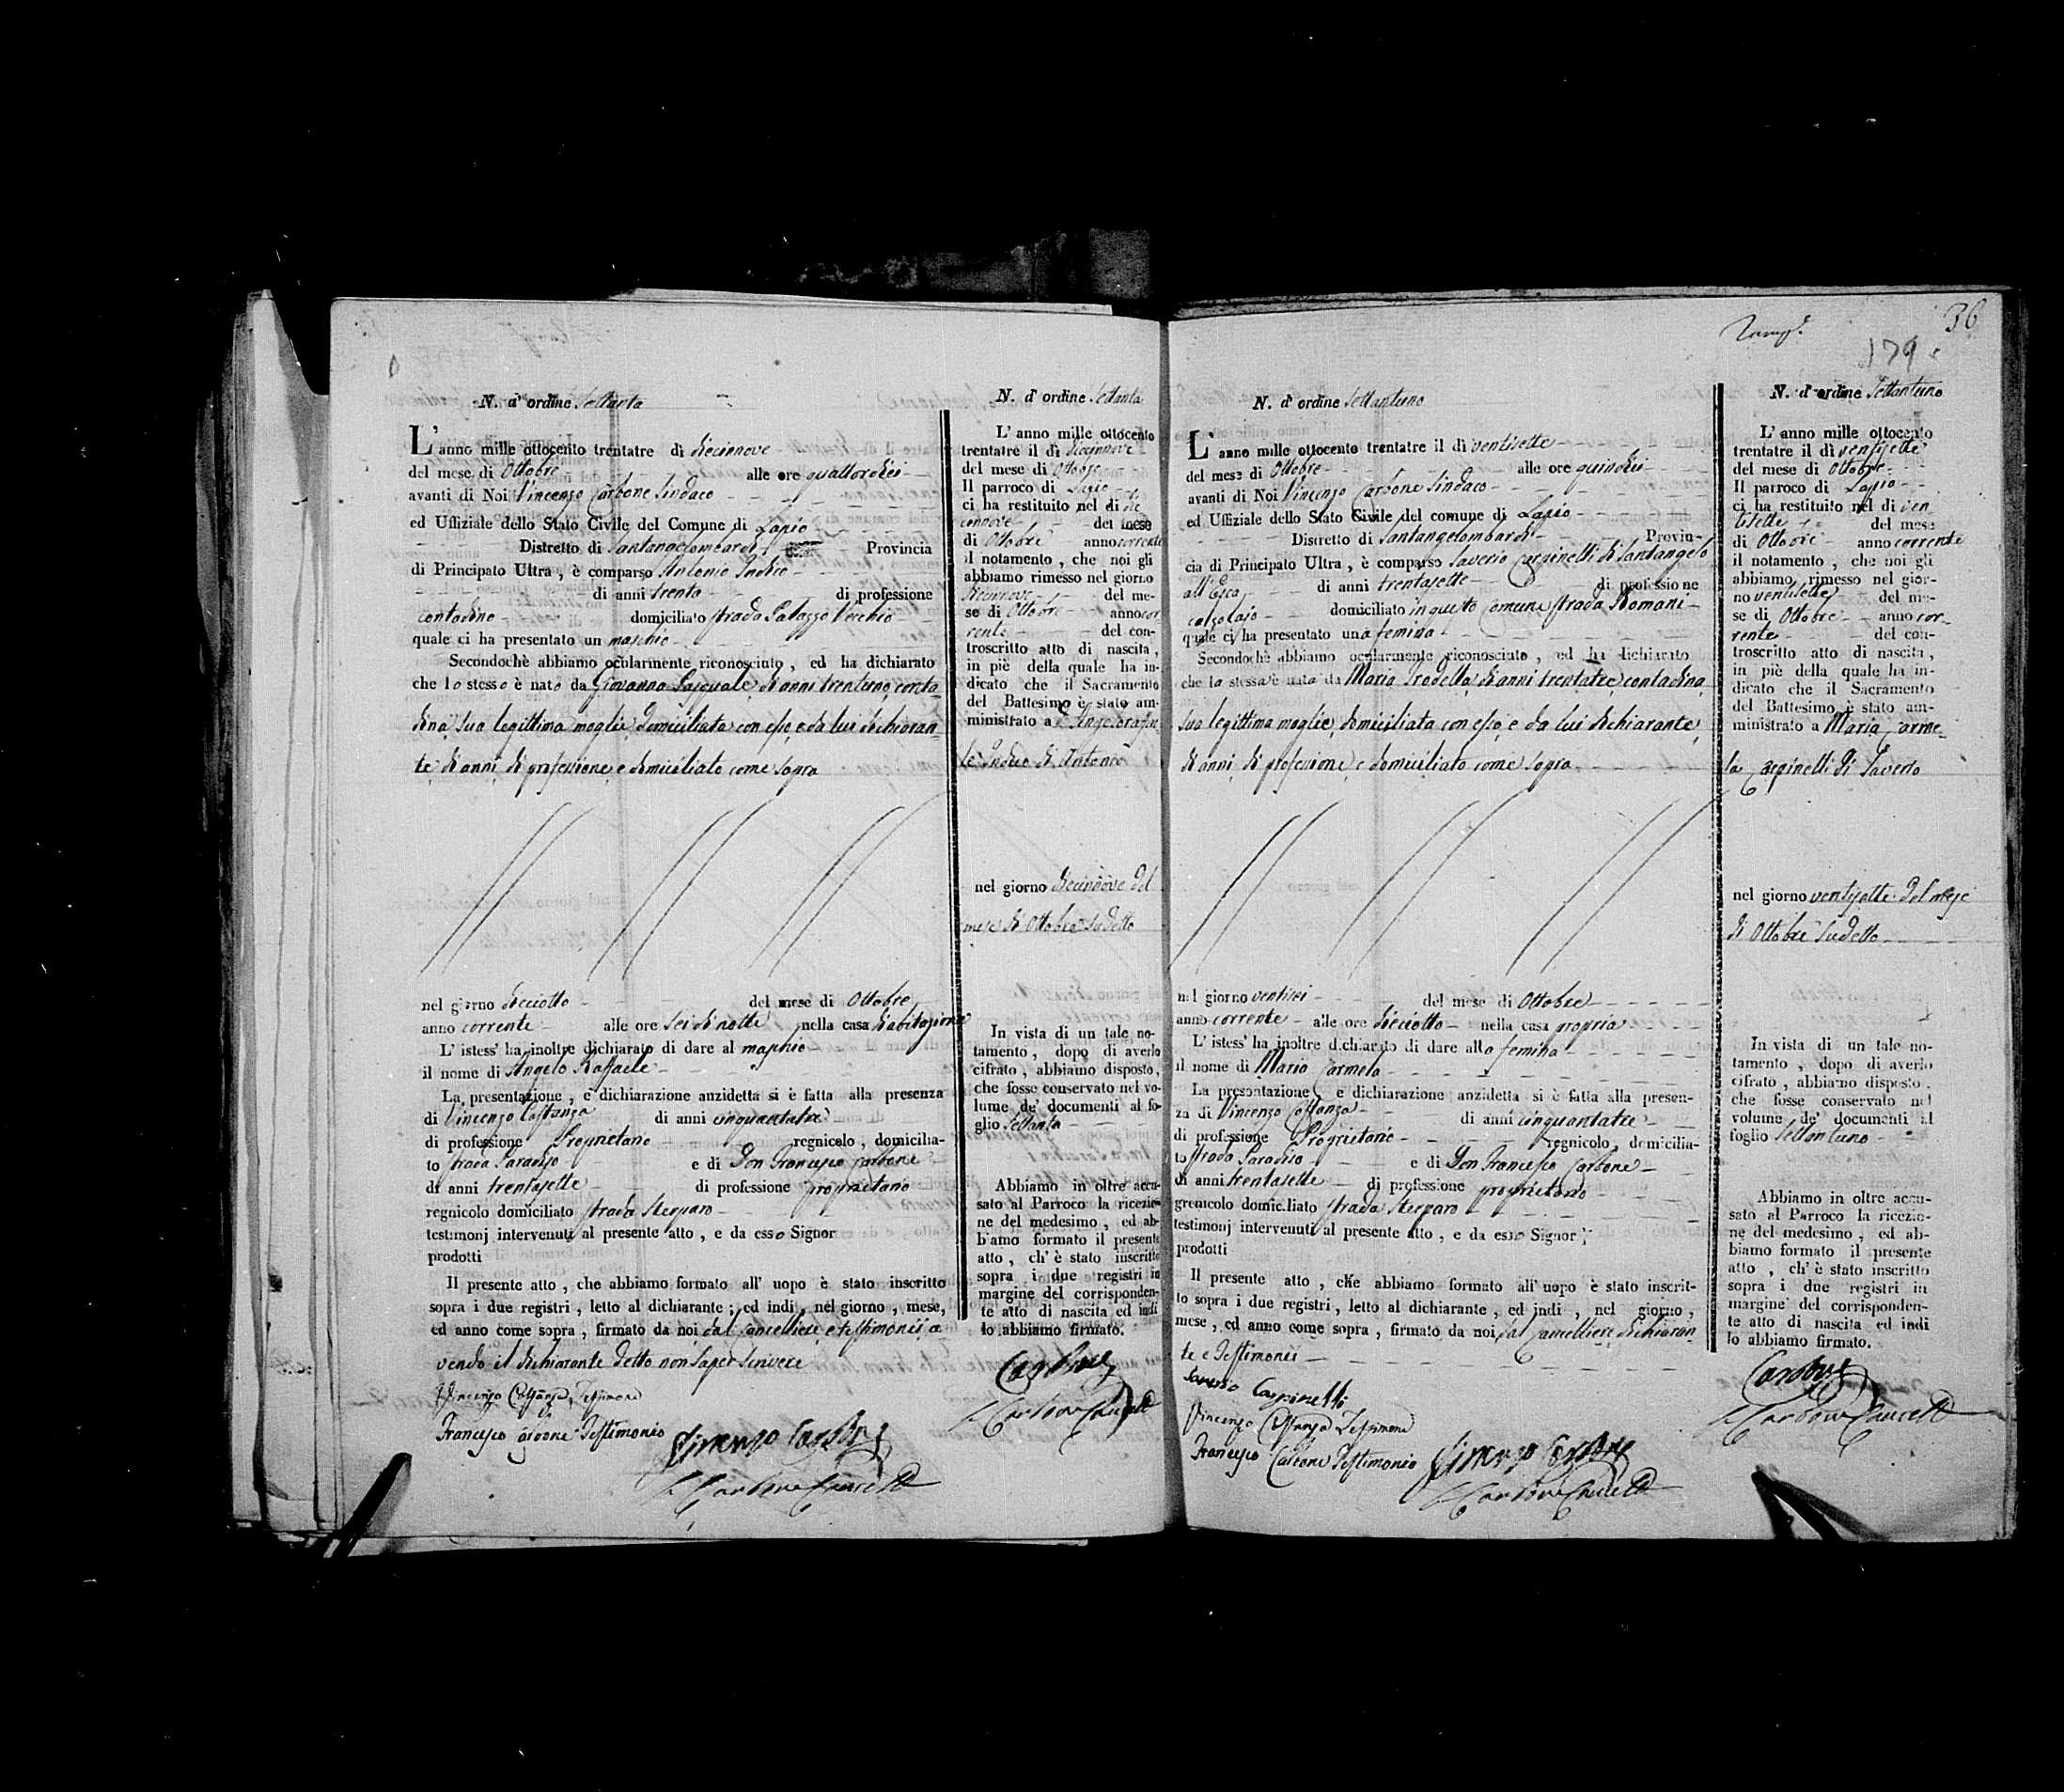 N. d' ordine Settanta
L' anno mille ottocento trentatre dì diecinnove
del mese di Ottobre alle ore quattordici
avanti di Noi Vincenzo Carbone Sindaco
ed Uffiziale dello Stato Civile del Comune di Lapio
Distretto di Santangelombardi Provincia
di Principato Ultra , è comparso Antonio
di anni trenta di professione
contadino domiciliato strada Palazzo Vecchio
quale ci ha presentato un maschio
Secondochè abbiamo ocularmente riconosciuto , ed ha dichiarato
che lo stesso è nato da Giovanna Pasquale di anni trentuno, conta-
dina, sua legittima moglie, domiciliata con esso, e da lui dichiaran-
te, di anni, di professione, e domiciliato come sopra
nel giorno dieciotto del mese di Ottobre
anno corrente alle ore sei di notte nella casa d'abitazione
L' istess' ha inoltre dichiarato di dare al maschio
il nome di Angelo Raffaele
La presentazione , e dichiarazione anzidetta si è fatta alla presenza
di Vincenzo Costanza di anni cinquantatre
di professione Proprietario regnicolo , domicilia-
to strada Paradiso e di Don Francesco Carbone
di anni trentasette di professione proprietario
regnicolo domiciliato strada Sterparo
testimonj intervenuti al presente atto , e da esso Signor
prodotti
Il presente atto , che abbiamo formato all' uopo è stato inscritto
sopra i due registri , letto al dichiarante ; ed indi , nel giorno , mese,
ed anno come sopra , firmato da noi dal Cancelliere, e testimonii, a
vendo il dichiarante detto non saper scrivere
Vincenzo Costanza Testimone
Francesco Carbone Testimonio
Vincenzo Carbone
Carbone Cancell
N. d' ordine Settanta
L' anno mille ottocento
trentatre il dì diecinnove
del mese di Ottobre
Il parroco di Lapio
ci ha restituito nel dì die
cinnove del mese
di Ottobre anno corrente
il notamento , che noi gli
abbiamo rimesso nel giorno
diecinnove del me-
se di Ottobre anno cor
rente del con-
troscritto atto di nascita ,
in piè della quale ha in-
dicato che il Sacramento
del Battesimo è stato am-
ministrato a Angelo Raffae
le di Antonio
nel giorno diecinnove del
mese di Ottobre sudetto
In vista di un tale no-
tamento , dopo di averlo
cifrato , abbiamo disposto,
che fosse conservato nel vo-
lume de' documenti al fo-
glio Settanta
Abbiamo in oltre accu-
sato al Parroco la ricezio-
ne del medesimo , ed ab-
biamo formato il presente
atto , ch' è stato inscritto
sopra i due registri in
margine del corrisponden-
te atto di nascita ed indi
lo abbiamo firmato.
Carbone
Carbone Cancell
36
179
N. d' ordine Settantuno
L' anno mille ottocento trentatre il dì ventisette
del mese di Ottobre alle ore quindici
avanti di Noi Vincenzo Carbone Sindaco
ed Uffiziale dello Stato Civile del comune di Lapio
Distretto di Santangelombardi Provin-
cia di Principato Ultra , è comparso Saverio Carpinelli di Santangelo
all'Esca di anni trentasette di professione
calzolajo domiciliato in questo Comune strada Romani
quale ci ha presentato una femina
Secondochè abbiamo ocularmente riconosciuto , ed ha dichiarato
che la stessa è nata da Maria Prodella, di anni trentatre, contadina
sua legittima moglie, domiciliata con esso, e da lui dichiarante,
di anni, di professione, e domiciliato come sopra
nel giorno ventisei del mese di Ottobre
anno corrente alle ore dieciotto nella casa propria
L' istess' ha inoltre dichiarato di dare alla femina
il nome di Maria Carmela
La presentazione , e dichiarazione anzidetta si è fatta alla presen-
za di Vincenzo Costanza di anni cinquantatre
di professione Proprietario regnicolo , domicilia-
to strada Paradiso e di Don Francesco Carbone
di anni trentasette di professione proprietario
gregnicolo domiciliato strada Sterparo
testimonj intervenuti al presente atto , e da esso Signor
prodotti
Il presente atto , che abbiamo formato all' uopo è stato inscrit-
to sopra i due registri , letto al dichiarante , ed indi , nel giorno ,
mese , ed anno come sopra , firmato da noi, dal Cancelliere, dichiaran
te e Testimonii
Saverio Carpinelli
Vincenzo Costanza Testimone
Francesco Carbone Testimonio
Vincenzo Carbone
Carbone Cancell
N. d' ordine Settantuno
L' anno mille ottocento
trentatre il dì ventisette
del mese di Ottobre
Il parroco di Lapio
ci ha restituito nel dì ven
tisette del mese
di Ottobre anno corrente
il notamento , che noi gli
abbiamo rimesso nel gior-
no ventisette del me-
se di Ottobre anno cor-
rente del con-
troscritto atto di nascita ,
in piè della quale ha in-
dicato che il Sacramento
del Battesimo è stato am-
ministrato a Maria Carme-
la Carpinelli di Saverio
nel giorno ventisette del mese
di Ottobre sudetto
In vista di un tale no-
tamento , dopo di averlo
cifrato , abbiamo disposto,
che fosse conservato nel
volume de' documenti al
foglio Settantuno
Abbiamo in oltre accu-
sato al Parroco la ricezio-
ne del medesimo , ed ab-
biamo formato il presente
atto , ch' è stato inscritto
sopra i due registri in
margine del corrisponden-
te atto di nascita ed indi
lo abbiamo firmato.
Carbone
Carbone Cancell